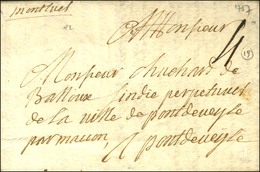 montluel
A Monsieur
Monsieur chuchart de
Balloux sindic perpetuel
de la ville de pontdeveyle
par macon, A pontdeveyle